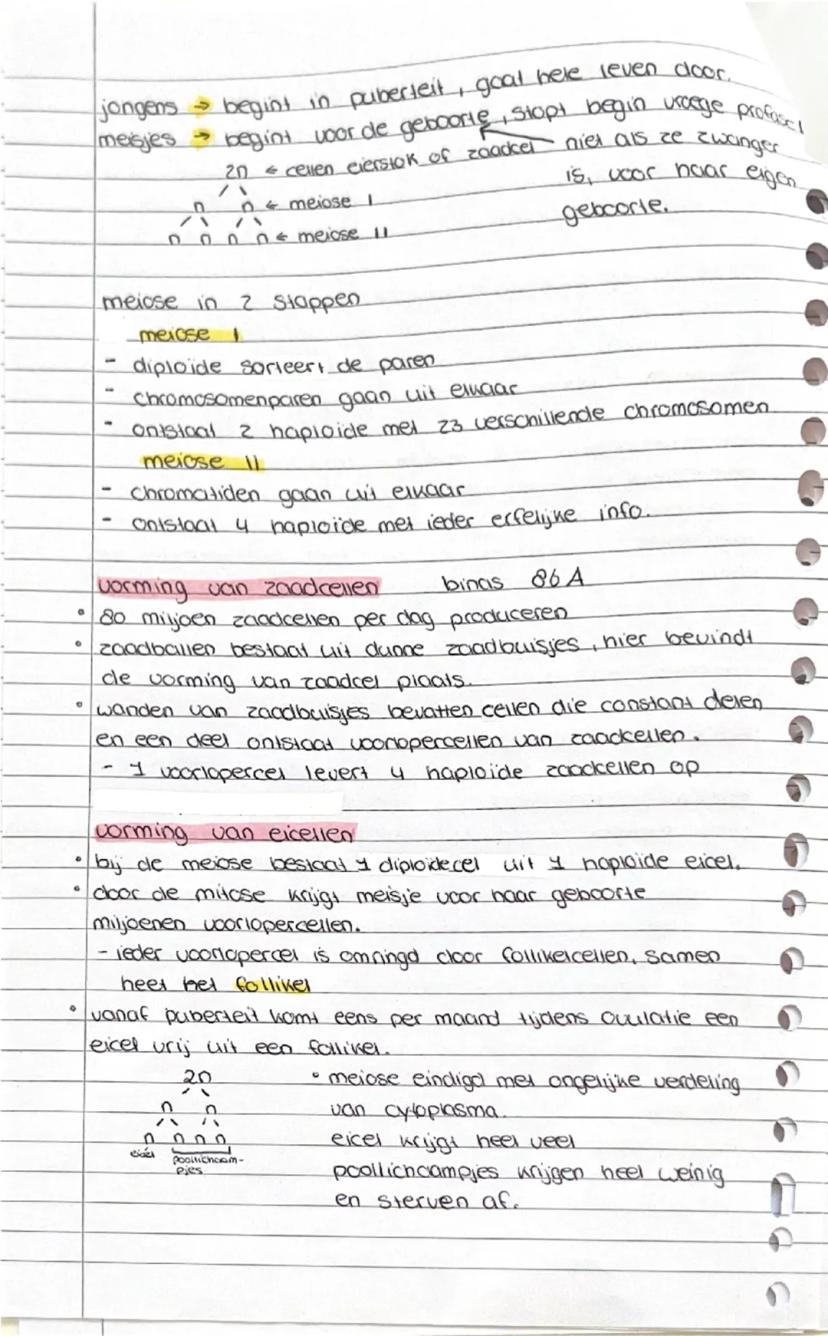 jongens → begint in puberteit, gaat hele leven door.
meisjes → begint voor de geboorte, stopt begin vroege profase I
2n ← cellen eierstok of zaadcel
niet als ze zwanger
is, voor haar eigen
geboorte.
n n ← meiose I
n n n n ← meiose II
meiose in 2 stappen
meiose I
- diploïde sorteert de paren
- chromosomenparen gaan uit elkaar
- ontstaat 2 haploïde met 23 verschillende chromosomen
meiose II
- chromatiden gaan uit elkaar
- ontstaat 4 haploïde met ieder erfelijke info.
vorming van zaadcellen binas 86 A
• 80 miljoen zaadcellen per dag produceren
• zaadballen bestaat uit dunne zaadbuisjes, hier bevindt
de vorming van zaadcel plaats.
• wanden van zaadbuisjes bevatten cellen die constant delen
en een deel ontstaat voorlopercellen van zaadcellen.
- 1 voorlopercel levert 4 haploïde zaadcellen op
vorming van eicellen
• bij de meiose bestaat 1 diploïdecel uit 1 haploïde eicel.
• door de mitose krijgt meisje voor haar geboorte
miljoenen voorlopercellen.
- ieder voorlopercel is omringd door follikelcellen, samen
heet het follikel
• vanaf puberteit komt eens per maand tijdens ovulatie een
eicel vrij uit een follikel.
2n
n n
n n n n
eicel poollichaam-
pjes
• meiose eindigd met ongelijke verdeling
van cytoplasma.
eicel krijgt heel veel
poollichaampjes krijgen heel weinig
en sterven af.